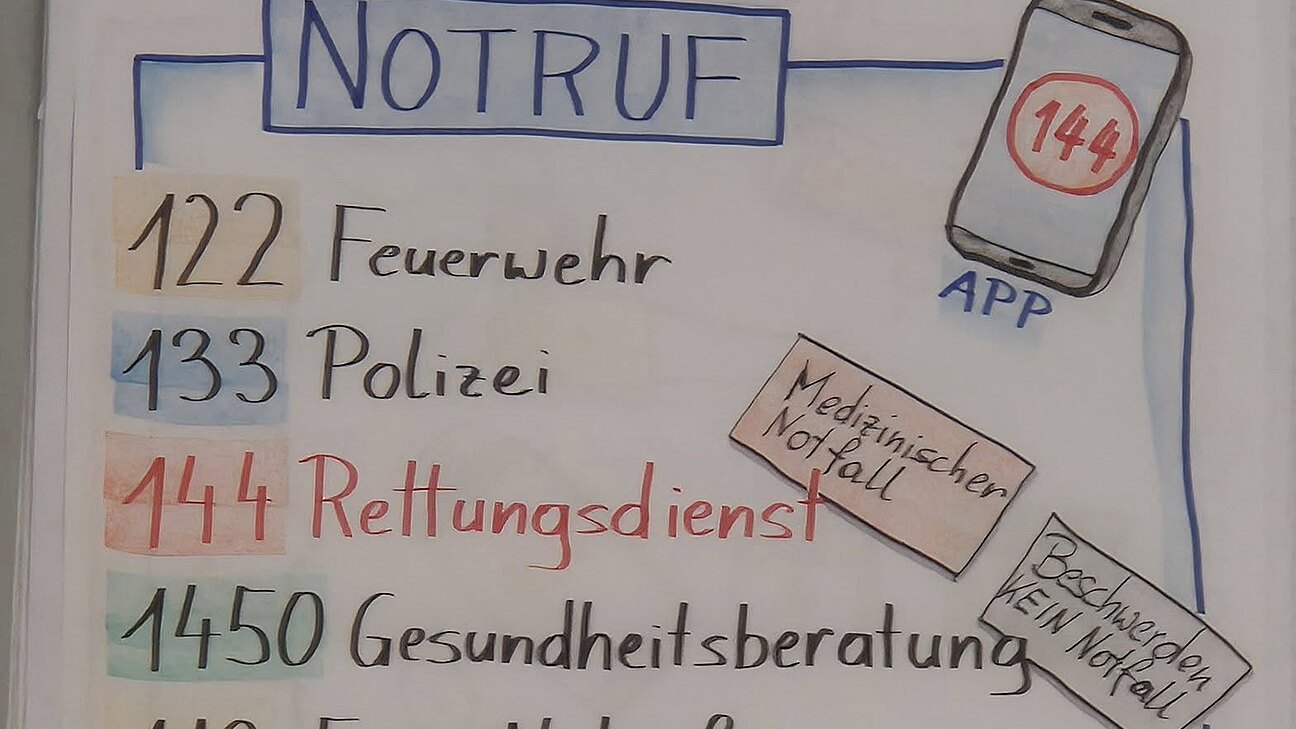 NOTRUF
144
APP
122 Feuerwehr
133 Polizei
Medizinischer
Notfall
144 Rettungsdienst
1450 Gesundheitsberatung
Beschwerden
KEIN Notfall